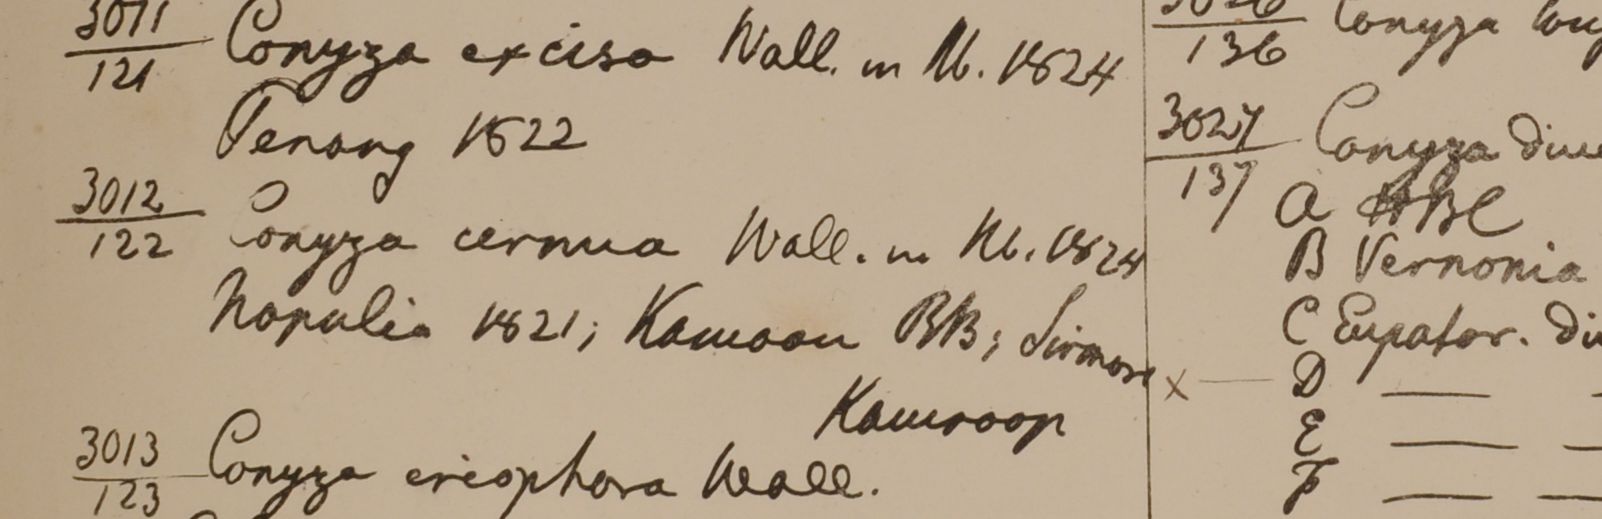 3011/121 Conyza excisa Wall. in Hb. 1824
Penang 1822
3012/122 Conyza cernua Wall. in Hb. 1824
Napalia 1821; Kamaon BB; Sirmore
Kamroop
3013/123 Conyza eriophora Wall.
136 Conyza
3027/137 Conyza
a HBC
B Vernonia
C Eupator.
x — D —
E —
F —